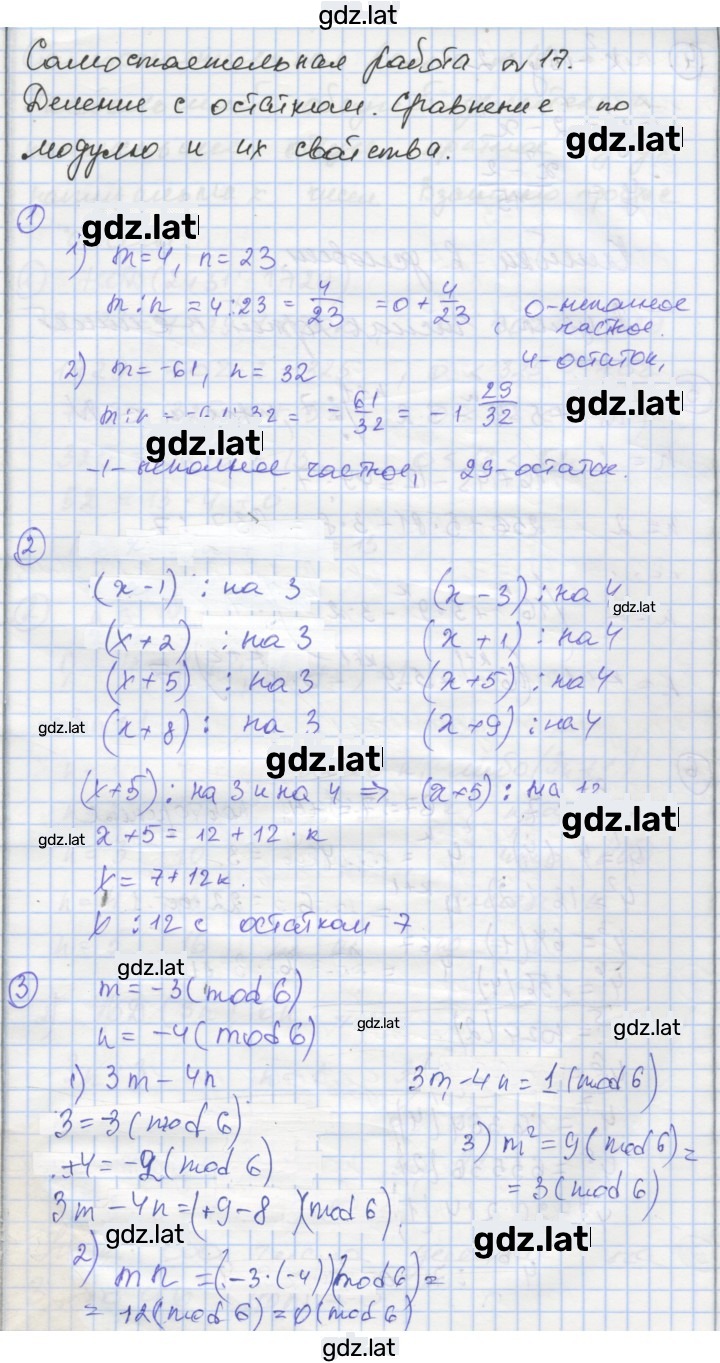 gdz.lat
Самостоятельная работа № 17.
Деление с остатком. Сравнение по
модулю и их свойства.
gdz.lat
①
gdz.lat
1) m=4, n=23
m:n = 4:23 = 4/23 = 0 + 4/23, 0-неполное
частное.
4-остаток,
2) m=-61, n= 32
gdz.lat
m:n = -61:32 = -61/32 = -1 29/32
gdz.lat
-1- неполное частное, 29-остаток.
②
(x-1) : на 3 (x-3) : на 4
gdz.lat
(x+2) : на 3 (x+1) : на 4
(x+5) : на 3 (x+5) : на 4
gdz.lat (x+8) : на 3 (x+9) : на 4
gdz.lat
(x+5) : на 3 и на 4 ⇒ (x+5) : на 12
gdz.lat
gdz.lat x+5 = 12 + 12 · к
x = 7+12к.
x : 12 с остатком 7
gdz.lat
③ m = -3 (mod 6)
gdz.lat gdz.lat
n = -4 (mod 6)
1) 3m - 4n 3m-4n = 1 (mod 6)
3 = -3 (mod 6)
3) m² = 9 (mod 6) =
+4 = -2 (mod 6)
= 3 (mod 6)
3m - 4n = (+9-8 )(mod 6).
gdz.lat gdz.lat
2) mn = (-3·(-4))(mod 6) =
= 12 (mod 6) = 0 (mod 6)
gdz.lat